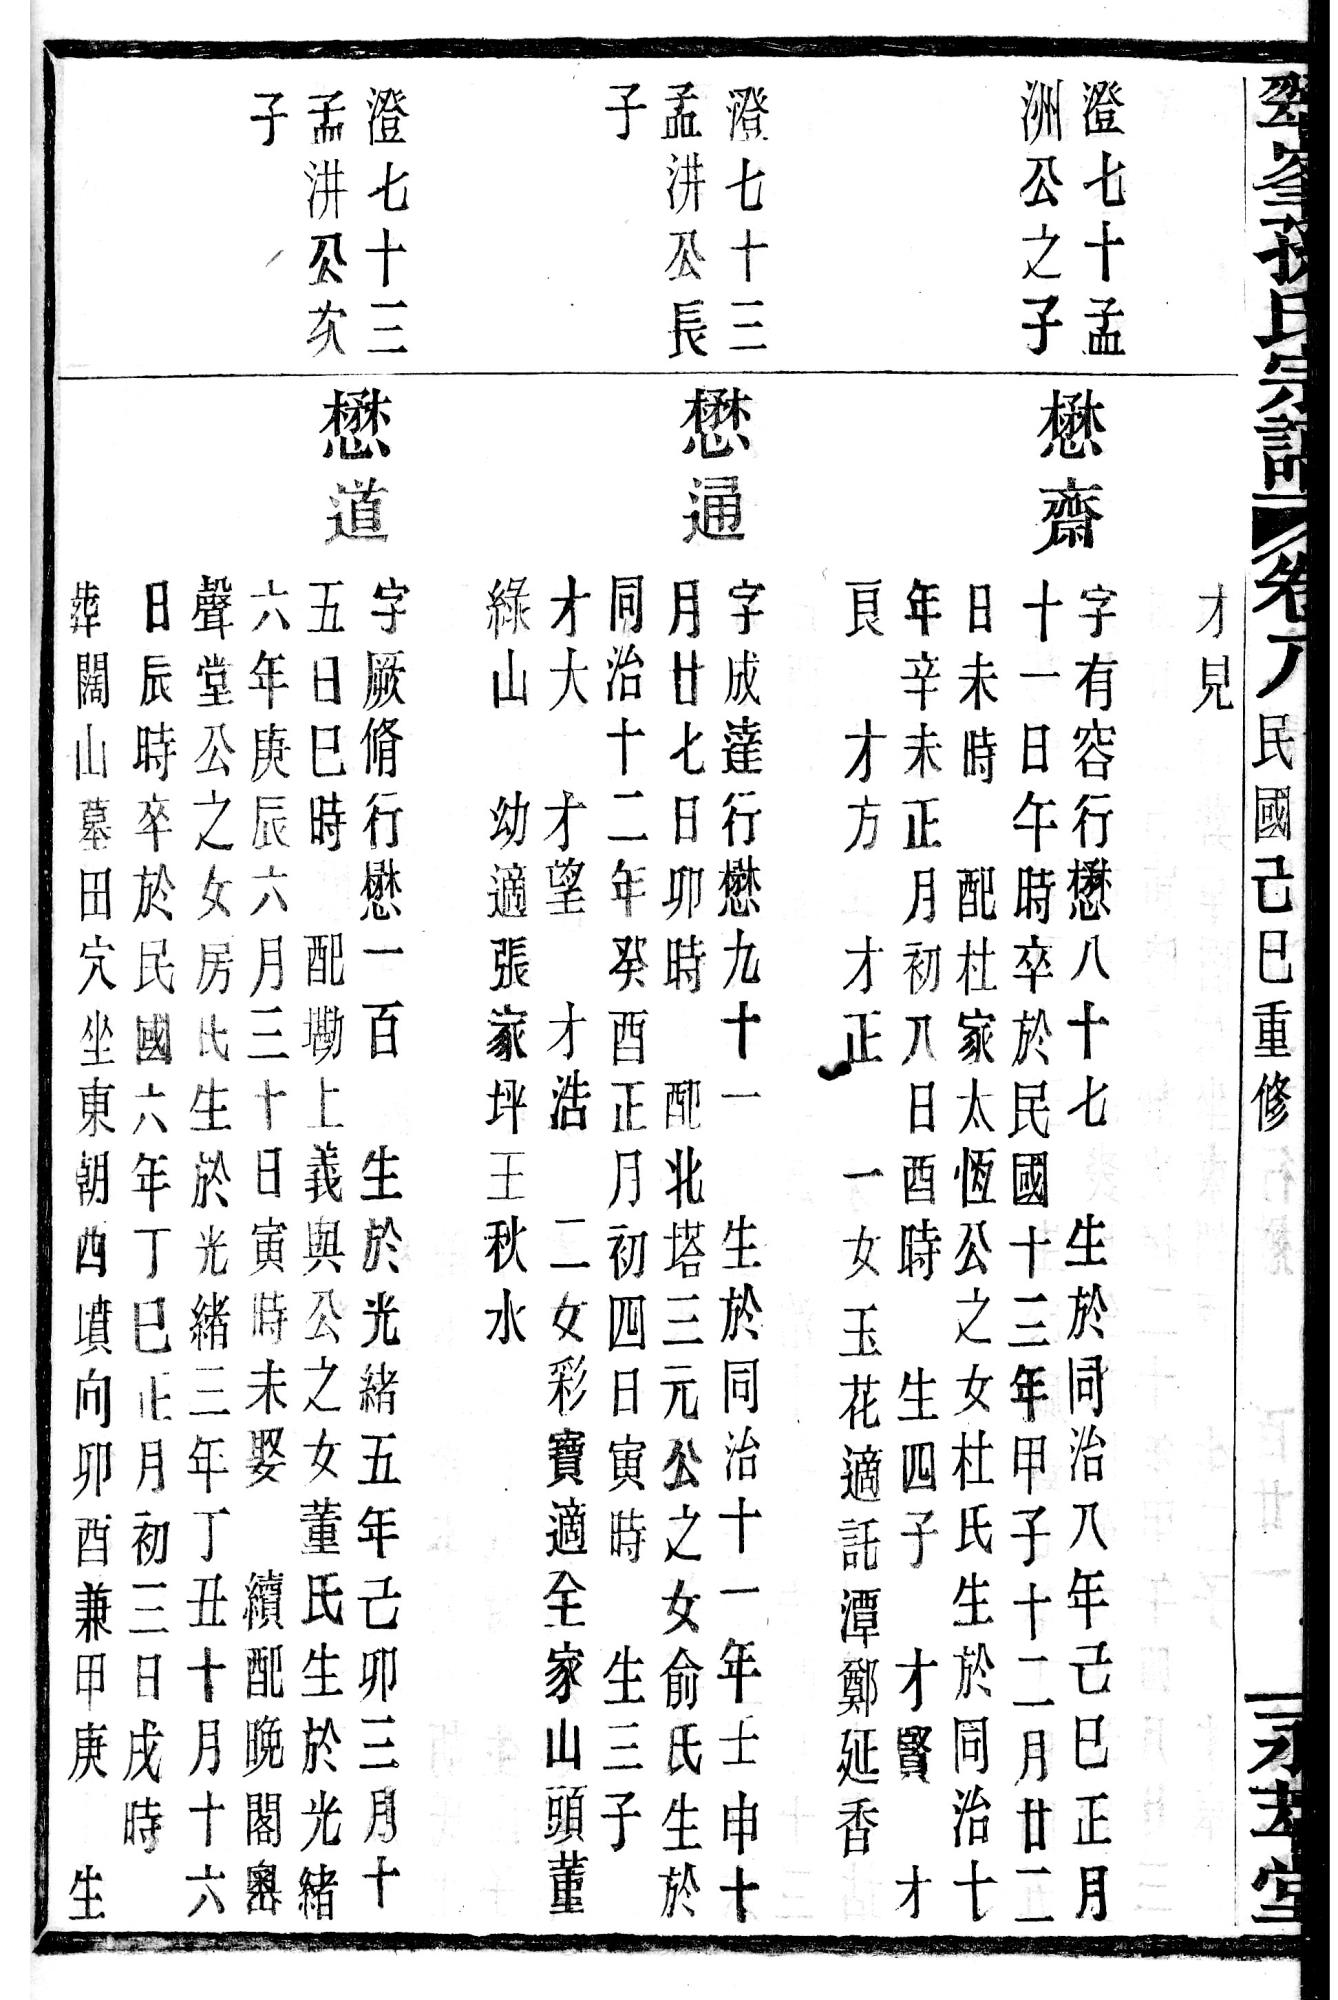 峯孫氏宗譜
卷八
民國己巳重修
永
堂
才見
澄七十孟
洲公之子
懋齋
字有容行懋八十七　生於同治八年己巳正月
十一日午時卒於民國十三年甲子十二月廿二
日未時　配杜家太恆公之女杜氏生於同治十
年辛未正月初八日酉時　生四子　才賢　才
良　才方　才正　一女玉花適託潭鄭延香
澄七十三
孟汫公長
子
懋通
字成達行懋九十一　生於同治十一年士申十
月廿七日卯時　配北塔三元公之女俞氏生於
同治十二年癸酉正月初四日寅時　生三子
才大　才望　才浩　二女彩寶適全家山頭董
綠山　幼適張家坪王秋水
澄七十三
孟汫公次
子
懋道
字厥脩行懋一百　生於光緒五年己卯三月十
五日巳時　配墈上義與公之女董氏生於光緒
六年庚辰六月三十日寅時未娶　續配晚閣嶴
聲堂公之女房氏生於光緒三年丁丑十月十六
日辰時卒於民國六年丁巳正月初三日戌時
葬闊山墓田穴坐東朝西墳向卯酉兼甲庚　生